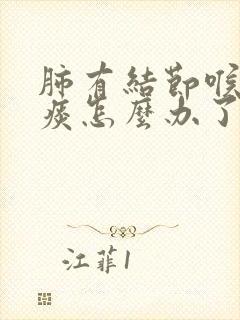 肺有結節喉
痰怎麼办了
江菲1